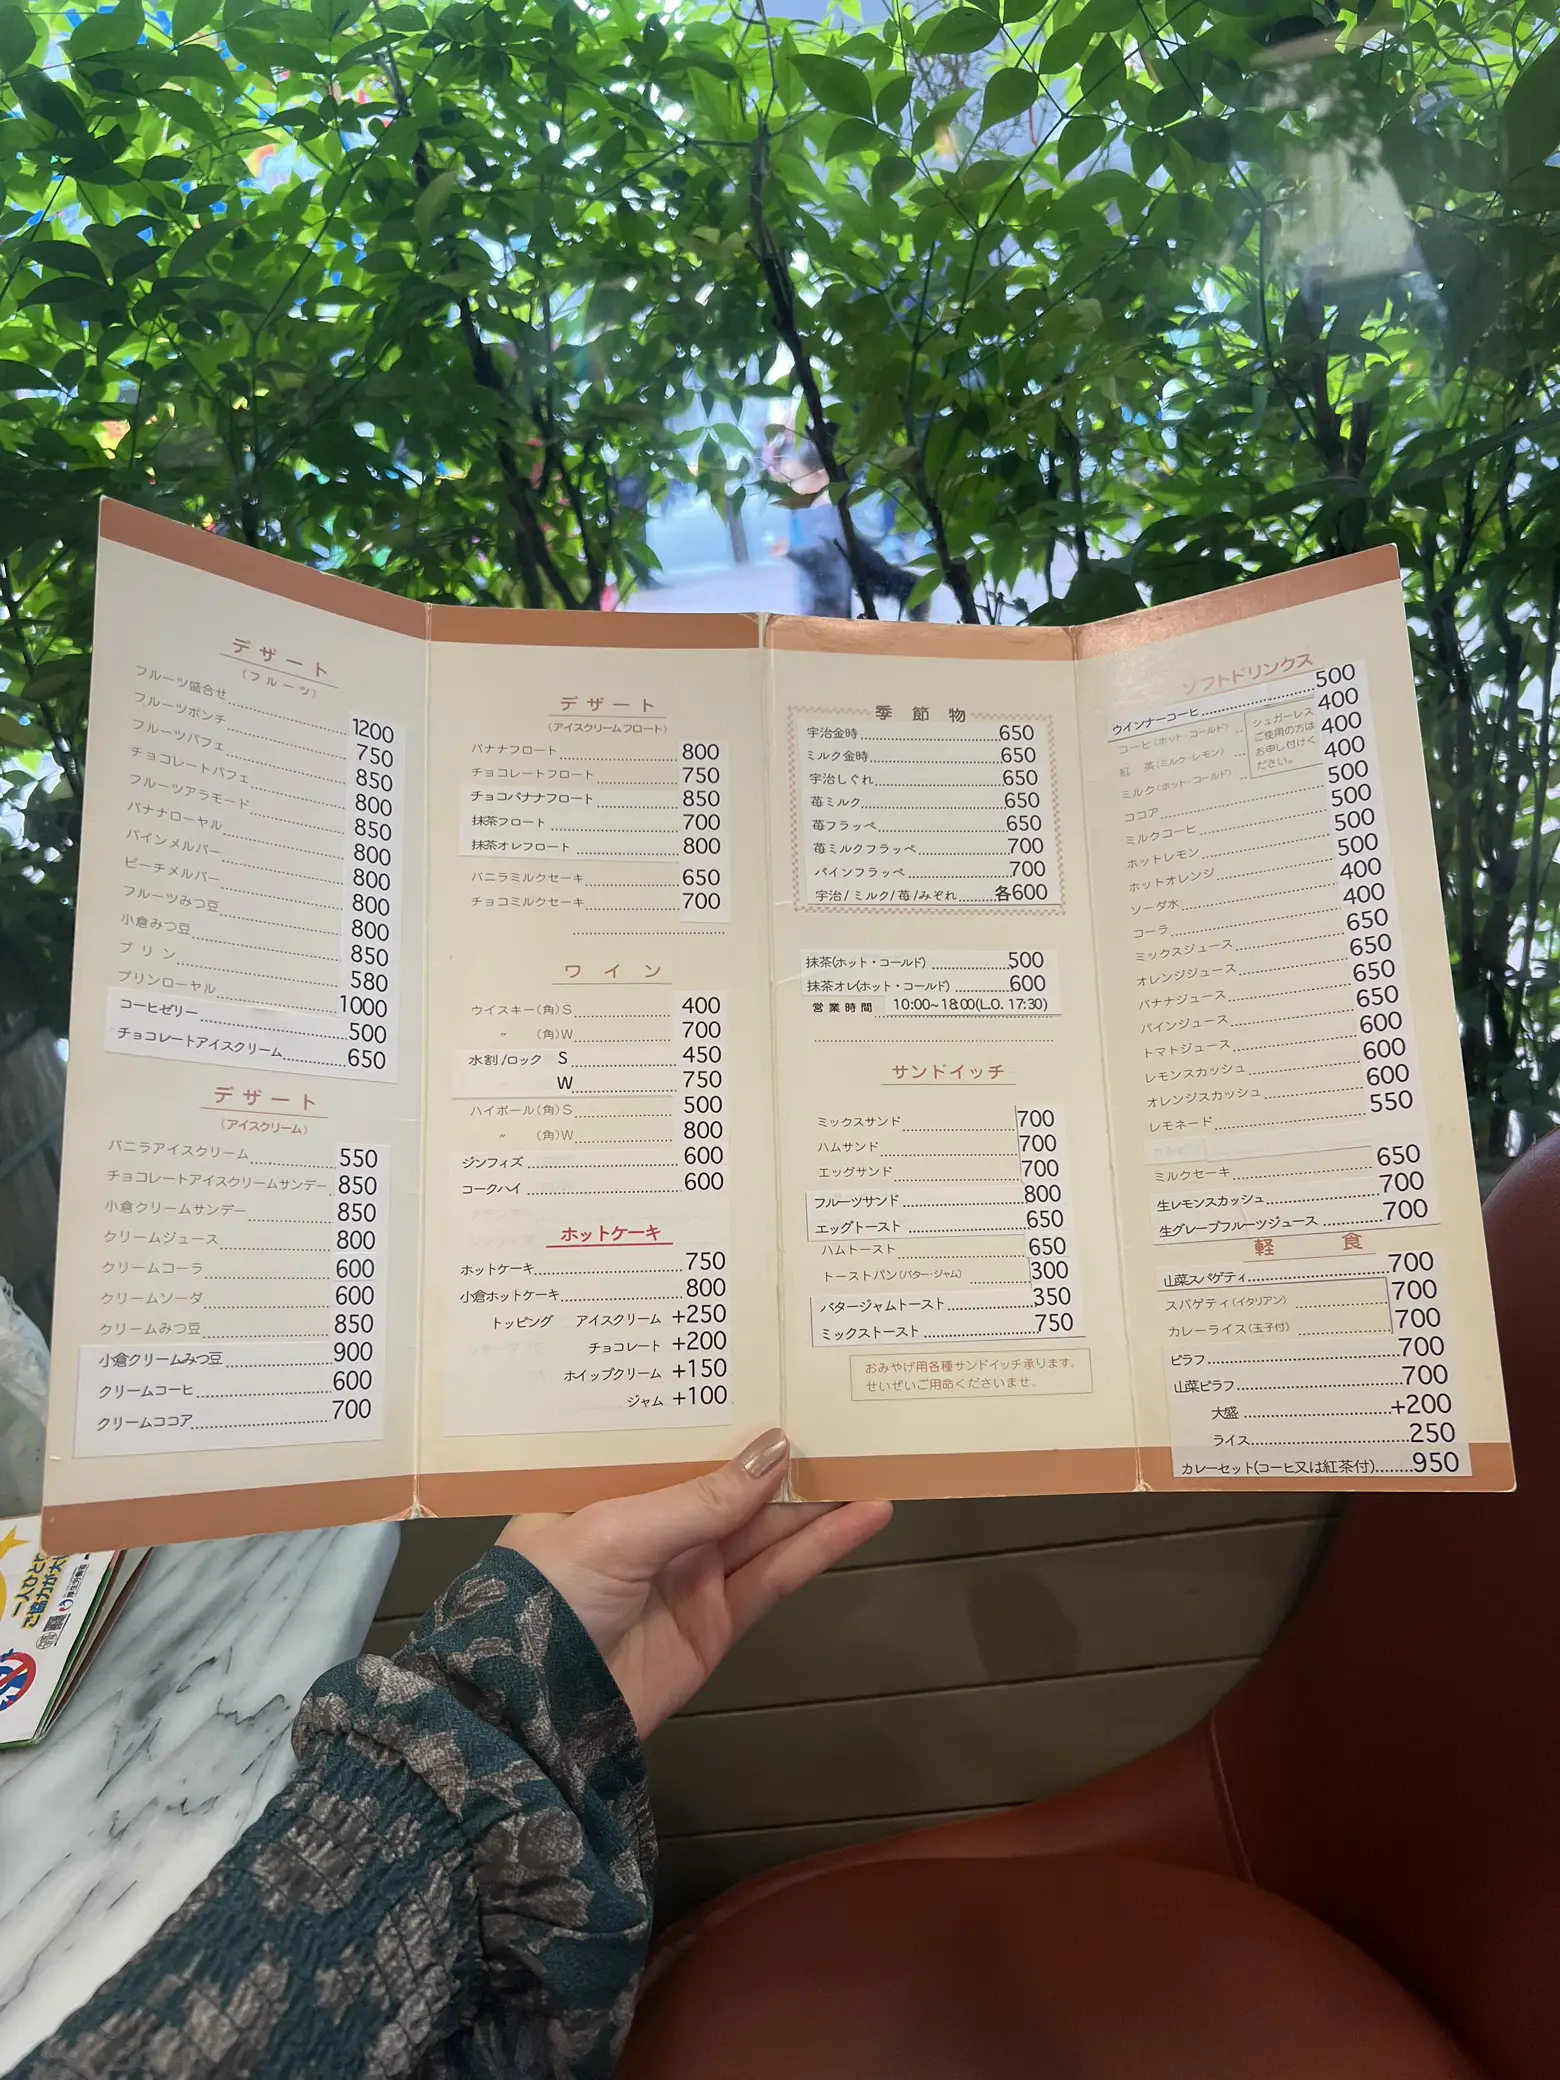 デザート
(フルーツ)
フルーツ盛合せ 1200
フルーツポンチ 750
フルーツパフェ 850
チョコレートパフェ 800
フルーツアラモード 850
バナナローヤル 800
パインメルバー 800
ピーチメルバー 800
フルーツみつ豆 800
小倉みつ豆 850
プリン 580
プリンローヤル 1000
コーヒゼリー 500
チョコレートアイスクリーム 650
デザート
(アイスクリーム)
バニラアイスクリーム 550
チョコレートアイスクリームサンデー 850
小倉クリームサンデー 850
クリームジュース 800
クリームコーラ 600
クリームソーダ 600
クリームみつ豆 850
小倉クリームみつ豆 900
クリームコーヒ 600
クリームココア 700
デザート
(アイスクリームフロート)
バナナフロート 800
チョコレートフロート 750
チョコバナナフロート 850
抹茶フロート 700
抹茶オレフロート 800
バニラミルクセーキ 650
チョコミルクセーキ 700
ワイン
ウイスキー(角)S 400
〃 (角)W 700
水割/ロック S 450
W 750
ハイボール(角)S 500
〃 (角)W 800
ジンフィズ 600
コークハイ 600
ホットケーキ
ホットケーキ 750
小倉ホットケーキ 800
トッピング アイスクリーム +250
チョコレート +200
ホイップクリーム +150
ジャム +100
季節物
宇治金時 650
ミルク金時 650
宇治しぐれ 650
苺ミルク 650
苺フラッペ 650
苺ミルクフラッペ 700
パインフラッペ 700
宇治/ミルク/苺/みぞれ 各600
抹茶(ホット・コールド) 500
抹茶オレ(ホット・コールド) 600
営業時間 10:00~18:00(L.O. 17:30)
サンドイッチ
ミックスサンド 700
ハムサンド 700
エッグサンド 700
フルーツサンド 800
エッグトースト 650
ハムトースト 650
トーストパン(バター・ジャム) 300
バタージャムトースト 350
ミックストースト 750
おみやげ用各種サンドイッチ承ります。
せいぜいご用命くださいませ。
ソフトドリンクス
ウインナーコーヒ 500
コーヒ(ホット・コールド) 400
紅茶(ミルク・レモン) 400
ミルク(ホット・コールド) 400
シュガーレス
ご使用の方は
お申し付けく
ださい。
ココア 500
ミルクコーヒ 500
ホットレモン 500
ホットオレンジ 500
ソーダ水 400
コーラ 400
ミックスジュース 650
オレンジジュース 650
バナナジュース 650
パインジュース 650
トマトジュース 600
レモンスカッシュ 600
オレンジスカッシュ 600
レモネード 550
ミルクセーキ 650
生レモンスカッシュ 700
生グレープフルーツジュース 700
軽食
山菜スパゲティ 700
スパゲティ(イタリアン) 700
カレーライス(玉子付) 700
ピラフ 700
山菜ピラフ 700
大盛 +200
ライス 250
カレーセット(コーヒ又は紅茶付) 950